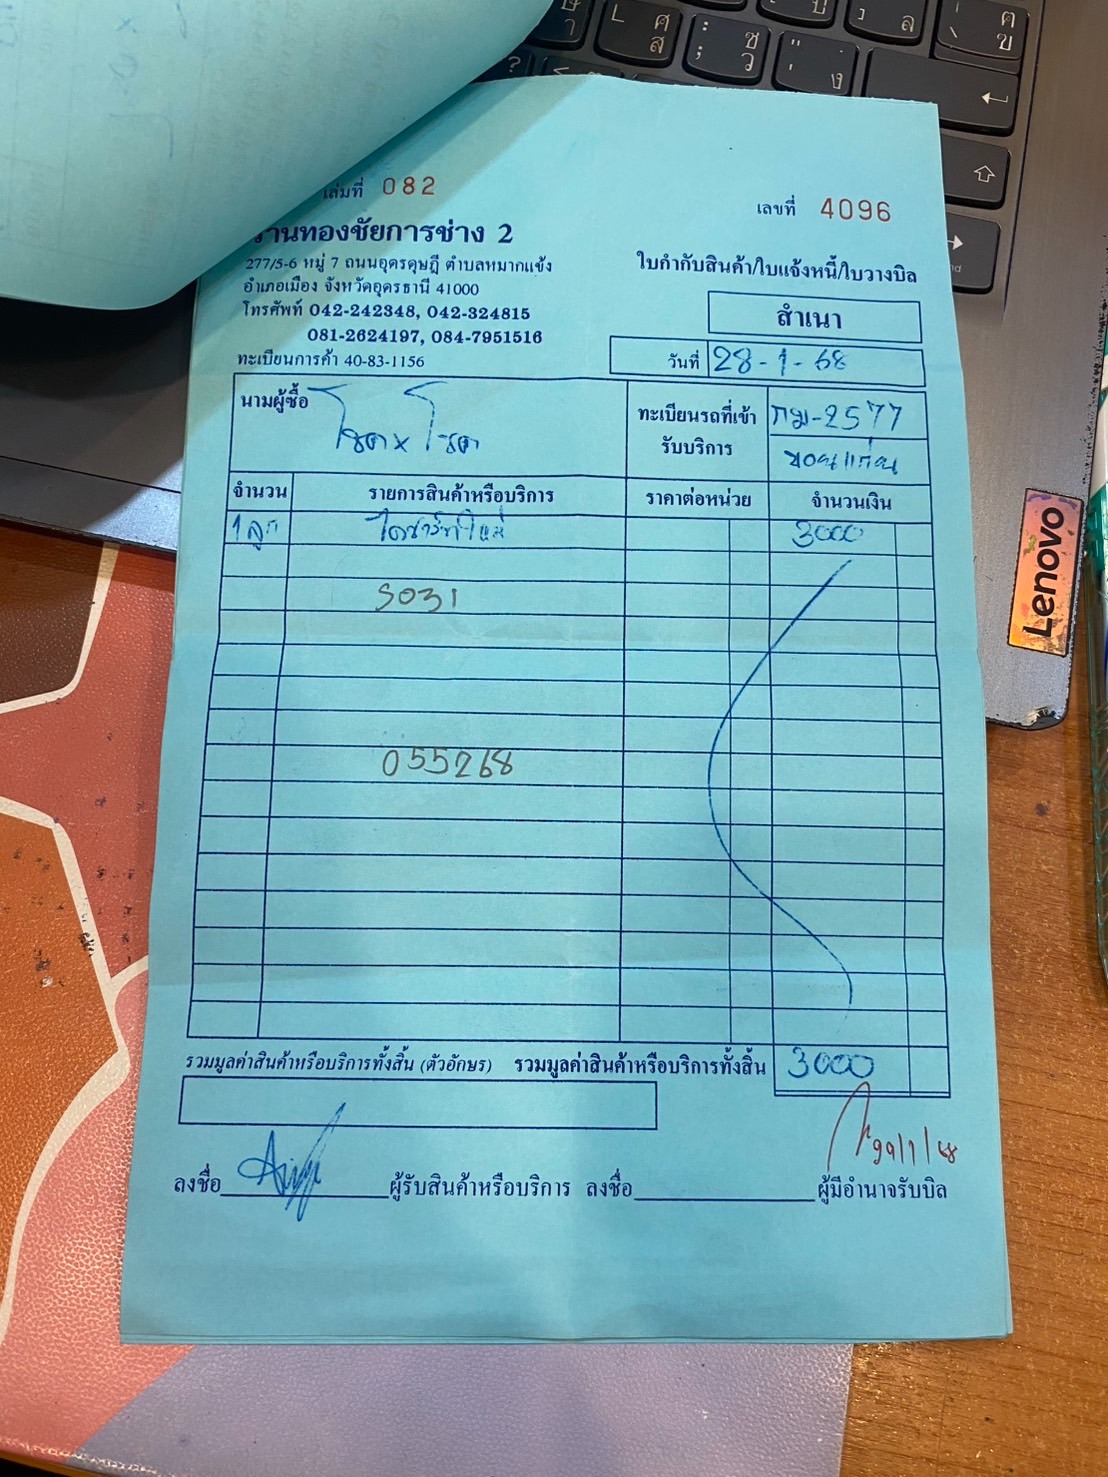 เล่มที่ 082
เลขที่ 4096
ร้านทองชัยการช่าง 2
277/5-6 หมู่ 7 ถนนอุดรดุษฎี ตำบลหมากแข้ง
อำเภอเมือง จังหวัดอุดรธานี 41000
โทรศัพท์ 042-242348, 042-324815
081-2624197, 084-7951516
ทะเบียนการค้า 40-83-1156
ใบกำกับสินค้า/ใบแจ้งหนี้/ใบวางบิล
สำเนา
วันที่ 28-1-68
นามผู้ซื้อ โชค x โชค
ทะเบียนรถที่เข้ารับบริการ
กม-2577
ขอนแก่น
จำนวน รายการสินค้าหรือบริการ ราคาต่อหน่วย จำนวนเงิน
1 ลูก ไดชาร์ทใหม่ 3000
S031
055268
รวมมูลค่าสินค้าหรือบริการทั้งสิ้น (ตัวอักษร) รวมมูลค่าสินค้าหรือบริการทั้งสิ้น 3000
ลงชื่อ ผู้รับสินค้าหรือบริการ ลงชื่อ ผู้มีอำนาจรับบิล
Lenovo